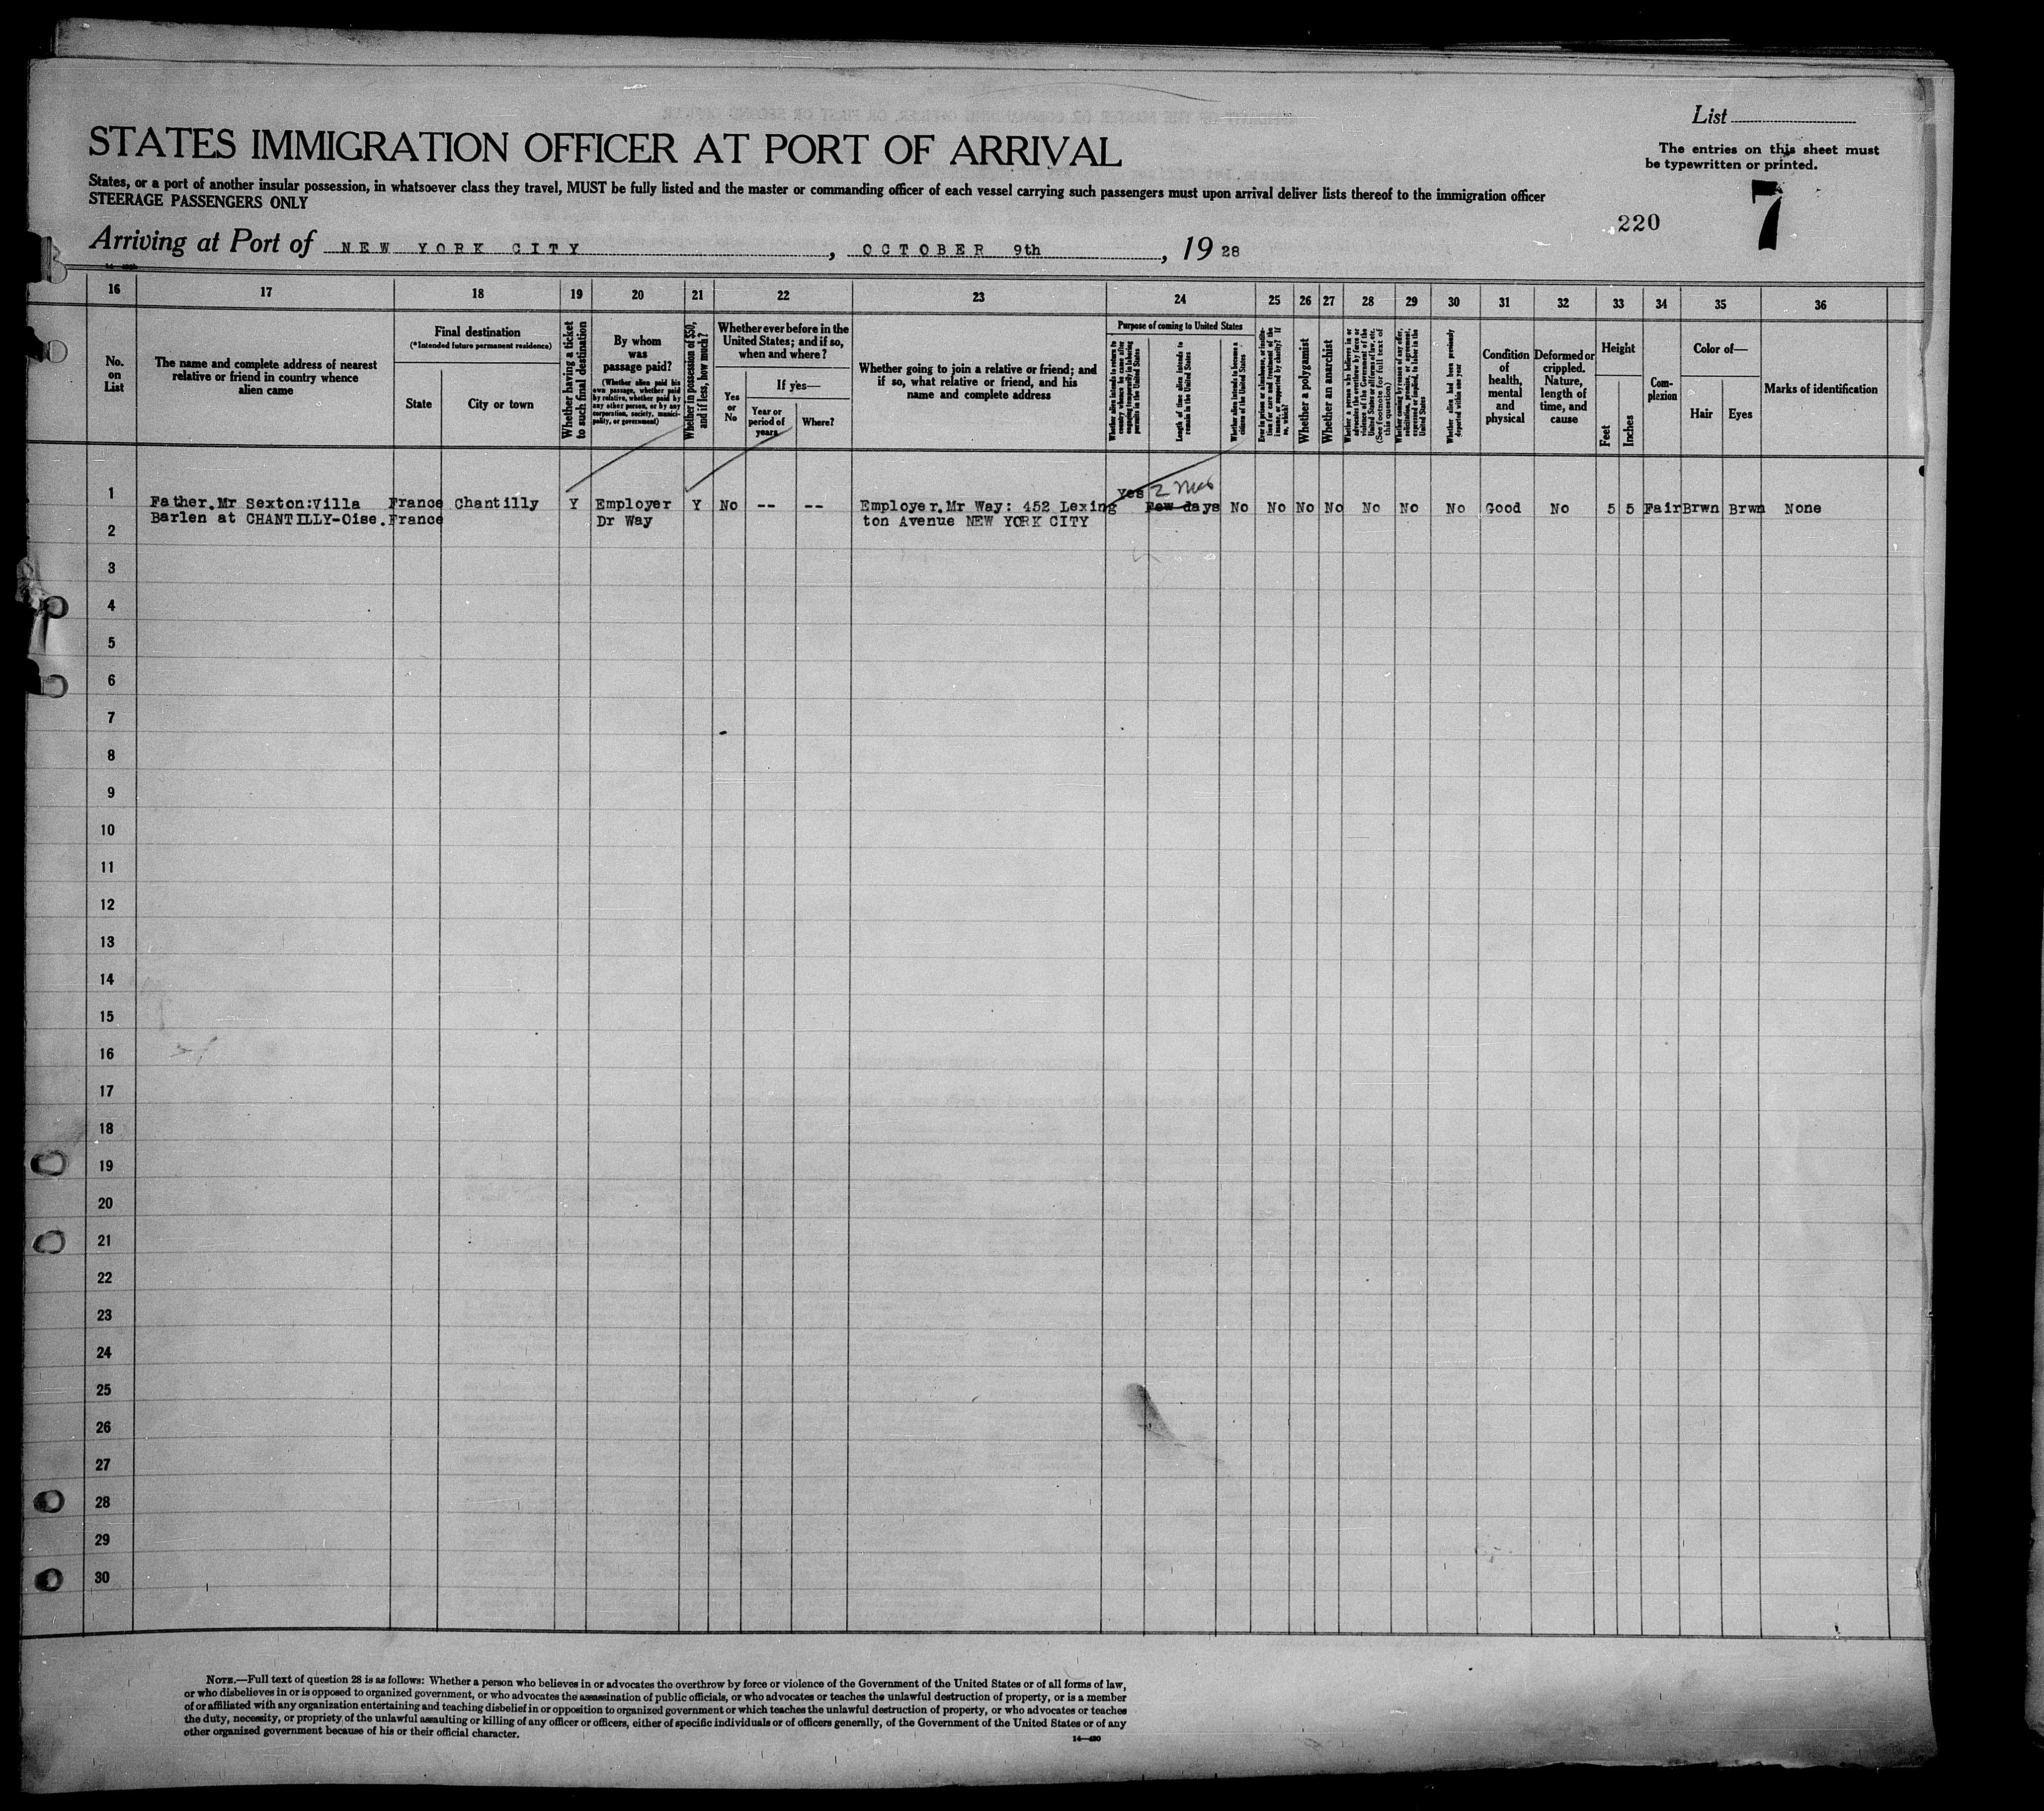 List
STATES IMMIGRATION OFFICER AT PORT OF ARRIVAL
The entries on this sheet must
be typewritten or printed.
States, or a port of another insular possession, in whatsoever class they travel, MUST be fully listed and the master or commanding officer of each vessel carrying such passengers must upon arrival deliver lists thereof to the immigration officer
STEERAGE PASSENGERS ONLY
220 7
Arriving at Port of NEW YORK CITY, OCTOBER 9th, 19 28
16 17 18 19 20 21 22 23 24 25 26 27 28 29 30 31 32 33 34 35 36
No.
on
List
The name and complete address of nearest
relative or friend in country whence
alien came
Final destination
(*Intended future permanent residence)
State
City or town
Whether having a ticket
to such final destination
By whom
was
passage paid?
(Whether alien paid his
own passage, whether paid
by relative, whether paid by
any other person, or by any
corporation, society, munici-
pality, or government)
Whether in possession of $50,
and if less, how much?
Whether ever before in the
United States; and if so,
when and where?
Yes
or
No
If yes—
Year or
period of
years
Where?
Whether going to join a relative or friend; and
if so, what relative or friend, and his
name and complete address
Purpose of coming to United States
Whether alien intends to return to
country whence he came after
engaging temporarily in laboring
pursuits in the United States
Length of time alien intends to
remain in the United States
Whether alien intends to become a
citizen of the United States
Ever in prison or almshouse, or institu-
tion for care and treatment of the
insane, or supported by charity? If
so, which?
Whether a polygamist
Whether an anarchist
Whether a person who believes in or
advocates the overthrow by force or
violence of the Government of the
United States or all forms of law, etc.
(See footnote for full text of
this question)
Whether coming by reason of any offer,
solicitation, promise, or agreement,
expressed or implied, to labor in the
United States
Whether alien had been previously
deported within one year
Condition
of
health,
mental
and
physical
Deformed or
crippled.
Nature,
length of
time, and
cause
Height
Feet
Inches
Com-
plexion
Color of—
Hair
Eyes
Marks of identification
1 Father.Mr Sexton:Villa France Chantilly Y Employer Y No -- -- Employer.Mr Way: 452 Lexing Yes 2 mos Few days No No No No No No No Good No 5 5 Fair Brwn Brwn None
Barlen at CHANTILLY-Oise.France Dr Way ton Avenue NEW YORK CITY
2
3
4
5
6
7
8
9
10
11
12
13
14
15
16
17
18
19
20
21
22
23
24
25
26
27
28
29
30
NOTE.—Full text of question 28 is as follows: Whether a person who believes in or advocates the overthrow by force or violence of the Government of the United States or of all forms of law,
or who disbelieves in or is opposed to organized government, or who advocates the assassination of public officials, or who advocates or teaches the unlawful destruction of property, or is a member
of or affiliated with any organization entertaining and teaching disbelief in or opposition to organized government or which teaches the unlawful destruction of property, or who advocates or teaches
the duty, necessity, or propriety of the unlawful assaulting or killing of any officer or officers, either of specific individuals or of officers generally, of the Government of the United States or of any
other organized government because of his or their official character.
14—480